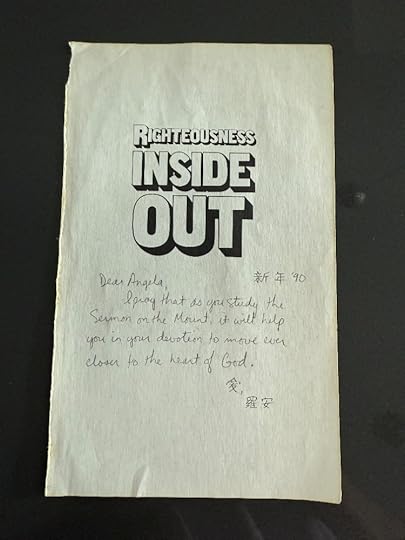 RIGHTEOUSNESS
INSIDE
OUT
新年 '90
Dear Angela,
I pray that as you study the
Sermon on the Mount, it will help
you in your devotion to move ever
closer to the heart of God.
愛,
羅安